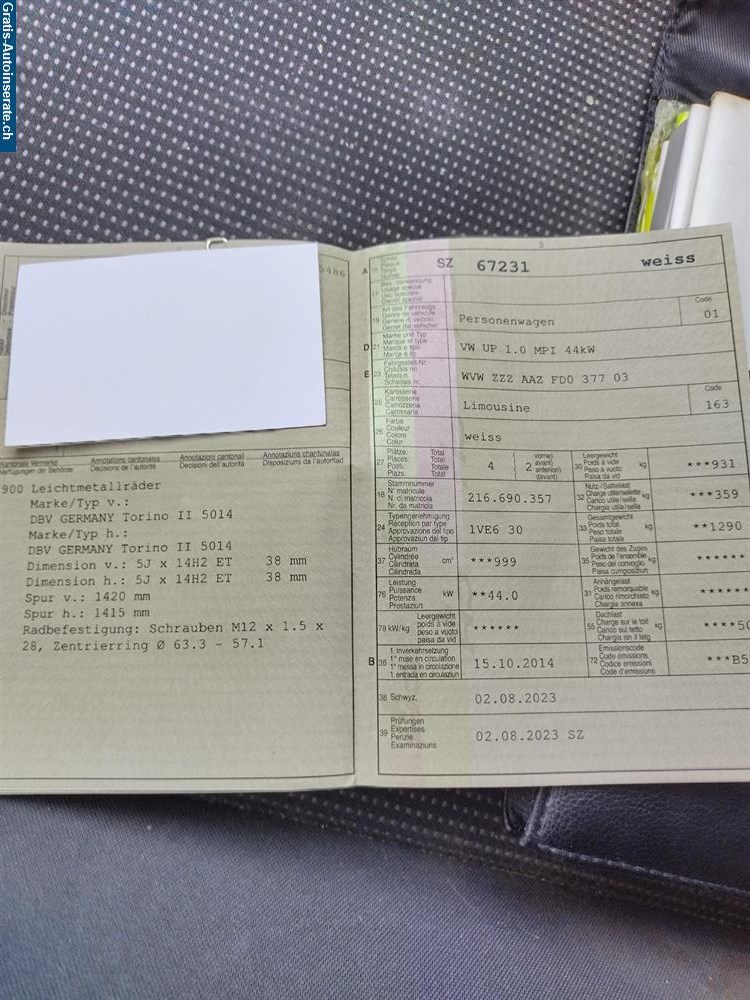 Gratis-Autoinserate.ch
5486
Kantonale Vermerke
Verfügungen der Behörde
Annotations cantonales
Décisions de l'autorité
Annotazioni cantonali
Decisioni dell'autorità
Annotaziuns chantunalas
Disposiziuns da l'autoritad
900 Leichtmetallräder
Marke/Typ v.:
DBV GERMANY Torino II 5014
Marke/Typ h.:
DBV GERMANY Torino II 5014
Dimension v.: 5J x 14H2 ET 38 mm
Dimension h.: 5J x 14H2 ET 38 mm
Spur v.: 1420 mm
Spur h.: 1415 mm
Radbefestigung: Schrauben M12 x 1.5 x
28, Zentrierring Ø 63.3 - 57.1
3
A SZ 67231 weiss
Code
Personenwagen 01
D 21 Marke und Typ
Marque et type
Marca e tipo
VW UP 1.0 MPI 44kW
E 23 Fahrgestell-Nr.
Châssis no
Telaio n.
WVW ZZZ AAZ FD0 377 03
25 Karosserie
Carrosserie
Carrozzeria
Limousine
Code
163
26 Farbe
Couleur
Colore
Color
weiss
27 Plätze: Total
Places: Total
Posti: Totale
Plazs: Total
4 2
vorne)
avant)
anteriori)
davant)
30 Leergewicht
Poids à vide
Peso a vuoto
Paisa da vid
kg ***931
18 Stammnummer
N° matricule
N. di matricola
Nr. da matricla
216.690.357
32 Nutz-/Sattellast
Charge utile/sellette
Carico utile/sella
Chargia utila/sella
kg ***359
24 Typengenehmigung
Réception par type
Approvazione del tipo
Approvaziun dal tip
1VE6 30
33 Gesamtgewicht
Poids total
Peso totale
Paisa totala
kg **1290
37 Hubraum
Cylindrée
Cilindrata
Cilindrada
cm³ ***999
35 Gewicht des Zuges
Poids de l'ensemble
Peso del convoglio
Paisa cumposiziun
kg ******
76 Leistung
Puissance
Potenza
Prestaziun
kW **44.0
31 Anhängelast
Poids remorquable
Carico rimorchiato
Chargia annexa
kg ******
78 kW/kg
Leergewicht
poids à vide
peso a vuoto
paisa da vid
******
55 Dachlast
Charge sur le toit
Carico sul tetto
Chargia sin il tetg
kg ****50
B 36 1. Inverkehrsetzung
1re mise en circulation
1a messa in circolazione
1. entrada en circulaziun
15.10.2014
72 Emissionscode
Code émissions
Codice emissioni
Code d'emissiuns
***B5
38 Schwyz, 02.08.2023
39 Prüfungen
Expertises
Perizie
Examinaziuns
02.08.2023 SZ